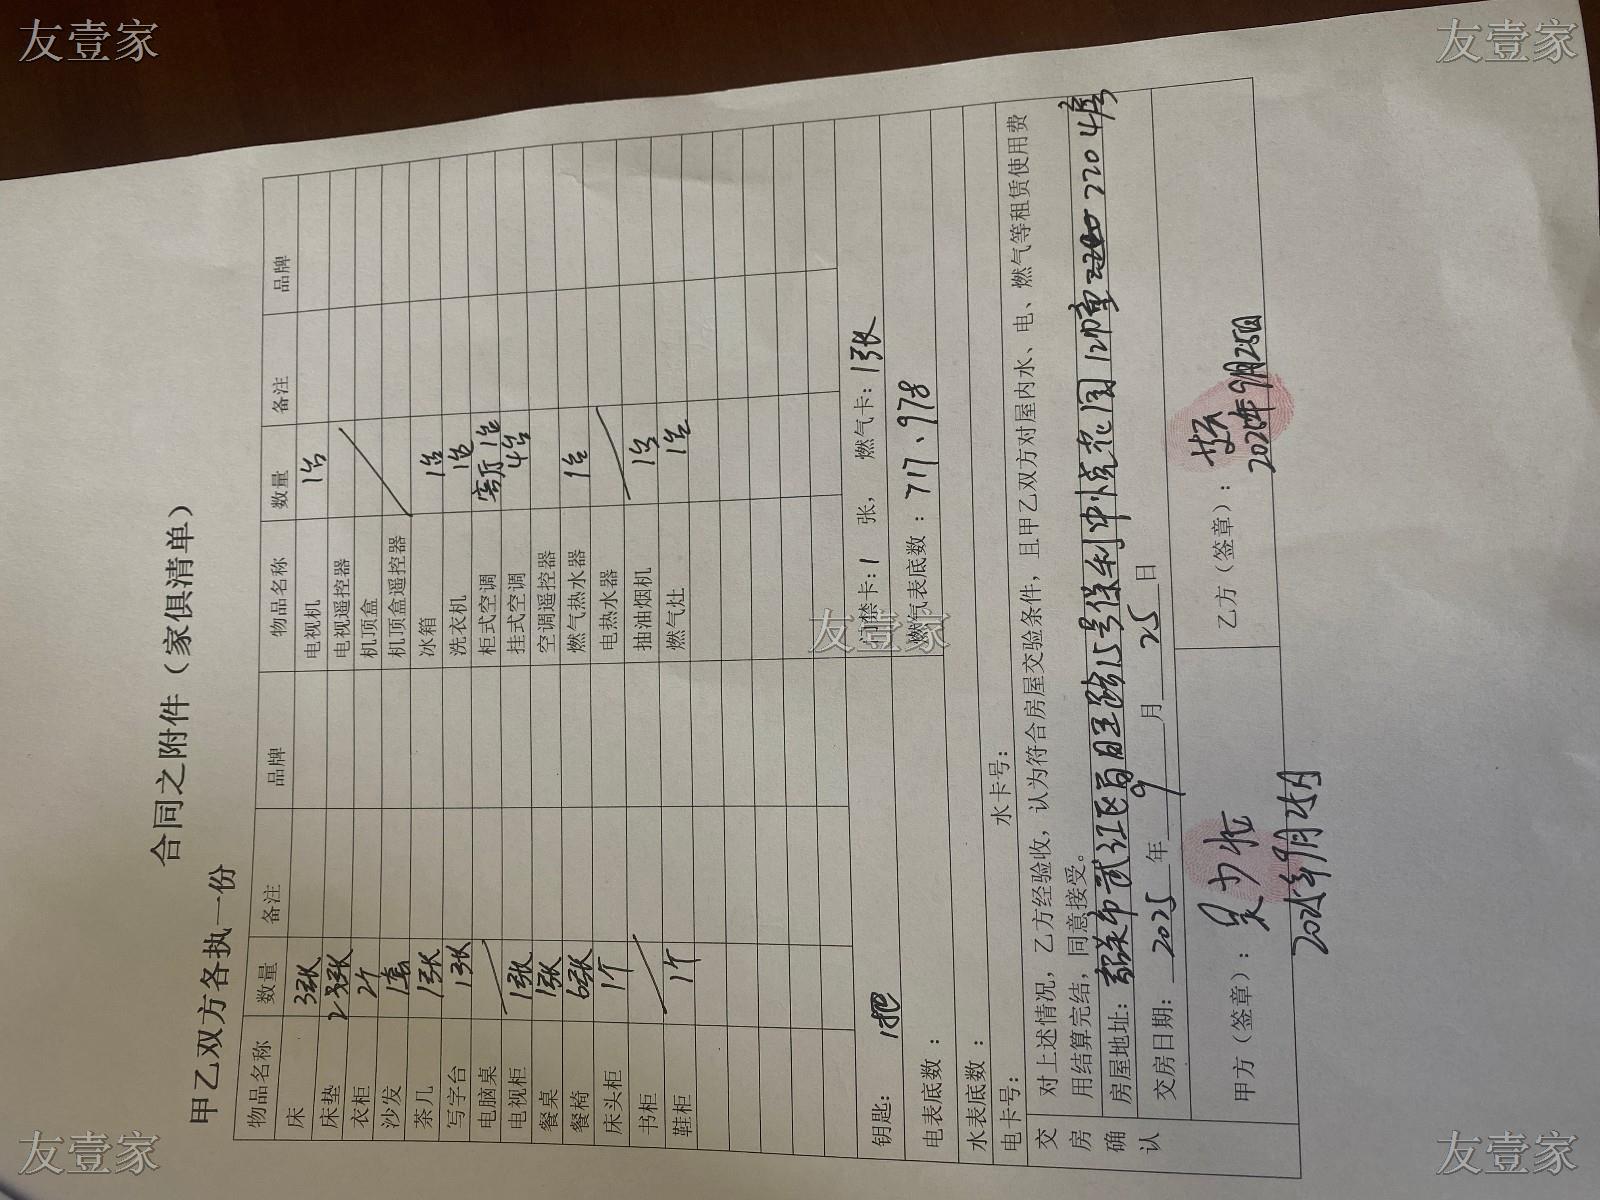 友壹家
友壹家
合同之附件（家俱清单）
甲乙双方各执一份
物品名称 数量 备注 品牌 物品名称 数量 备注 品牌
床 3张 电视机 1台
床垫 2张 电视遥控器
衣柜 2个 机顶盒
沙发 1套 机顶盒遥控器
茶几 1张 冰箱 1台
写字台 1张 洗衣机 1台
电脑桌 柜式空调 客厅 1台
电视柜 1张 挂式空调 4台
餐桌 1张 空调遥控器
餐椅 6张 燃气热水器 1台
床头柜 1个 电热水器
书柜 抽油烟机 1台
鞋柜 1个 燃气灶 1台
钥匙：1把 门禁卡：1 张， 燃气卡：1张
电表底数： 燃气表底数：717、978
水表底数：
电卡号： 水卡号：
交房确认
对上述情况，乙方经验收，认为符合房屋交验条件，且甲乙双方对屋内水、电、燃气等租赁使用费
用结算完结，同意接受。
房屋地址：韶关市武江区百旺路15号保利中悦花园12幢2204房
交房日期：2025年9月25日
甲方（签章）： 乙方（签章）：
2025年9月25日 2025年9月25日
友壹家
友壹家
友壹家